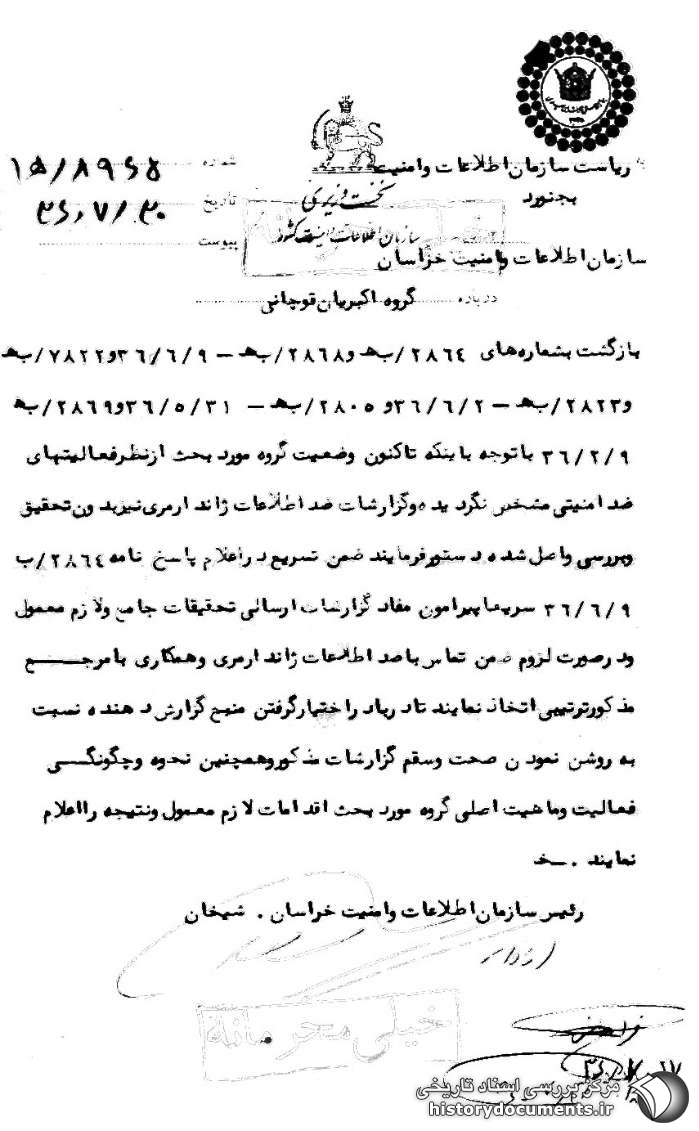 شماره ۱۵/۸۹۶۵
به ریاست سازمان اطلاعات و امنیت
بجنورد
نخست وزیری
تاریخ ۳۶/۷/۲۰
سازمان اطلاعات و امنیت کشور
پیوست
سازمان اطلاعات وامنیت خراسان
درباره گروه اکبریان قوچانی
بازگشت بشماره‌های ۲۸۶۴/به‍ و۲۸۶۸/به‍ – ۳۶/۶/۹ و۷۸۲۲/به‍
و۲۸۲۳/به‍ – ۳۶/۶/۲ و ۲۸۰۵/به‍ – ۳۶/۵/۳۱ و۲۸۶۹/به‍
۳۶/۲/۹ باتوجه باینکه تاکنون وضعیت گروه مورد بحث ازنظرفعالیتهای
ضد امنیتی مشخص نگردیده وگزارشات ضد اطلاعات ژاندارمری نیزبدون تحقیق
وبررسی واصل شده دستورفرمایند ضمن تسریع دراعلام پاسخ نامه ۲۸۶۴/ب
۳۶/۶/۹ سریعا پیرامون مفاد گزارشات ارسالی تحقیقات جامع ولازم معمول
ودرصورت لزوم ضمن تماس باضد اطلاعات ژاندارمری وهمکاری بامرجع
مذکورترتیبی اتخاذ نمایند تادرباد راختیارگرفتن منبع گزارش دهنده نسبت
به روشن نمودن صحت وسقم گزارشات مذکوروهمچنین نحوه وچگونگی
فعالیت وماهیت اصلی گروه مورد بحث اقدامات لازم معمول ونتیجه رااعلام
نمایند . خ
رئیس سازمان اطلاعات وامنیت خراسان . شیخان
خیلی محرمانه
مرکز بررسی اسناد تاریخی
historydocuments.ir